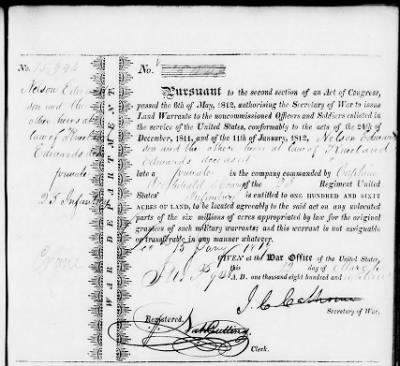 No. 15,946
No.
Nelson Edward
son and the
other heirs at
law of
Edwards
private
25 Infantry
WAR DEPARTMENT
Pursuant to the second section of an Act of Congress,
passed the 6th of May, 1812, authorising the Secretary of War to issue
Land Warrants to the noncommissioned Officers and Soldiers enlisted in
the service of the United States, conformably to the acts of the 24th of
December, 1811, and of the 11th of January, 1812, Nelson Edward
son and the other heirs at law of
Edwards deceased
late a private in company commanded by Captain
of the Regiment United
States' Infantry is entitled to ONE HUNDRED AND SIXTY
ACRES OF LAND, to be located agreeably to the said act on any unlocated
parts of the six millions of acres appropriated by law for the original
grantees of such military warrants; and this warrant is not assignable
or transferable in any manner whatever.
GIVEN at the War Office of the United States,
this day of
A. D. one thousand eight hundred and
J. C. Calhoun
Secretary of War.
Registered,
Clerk.